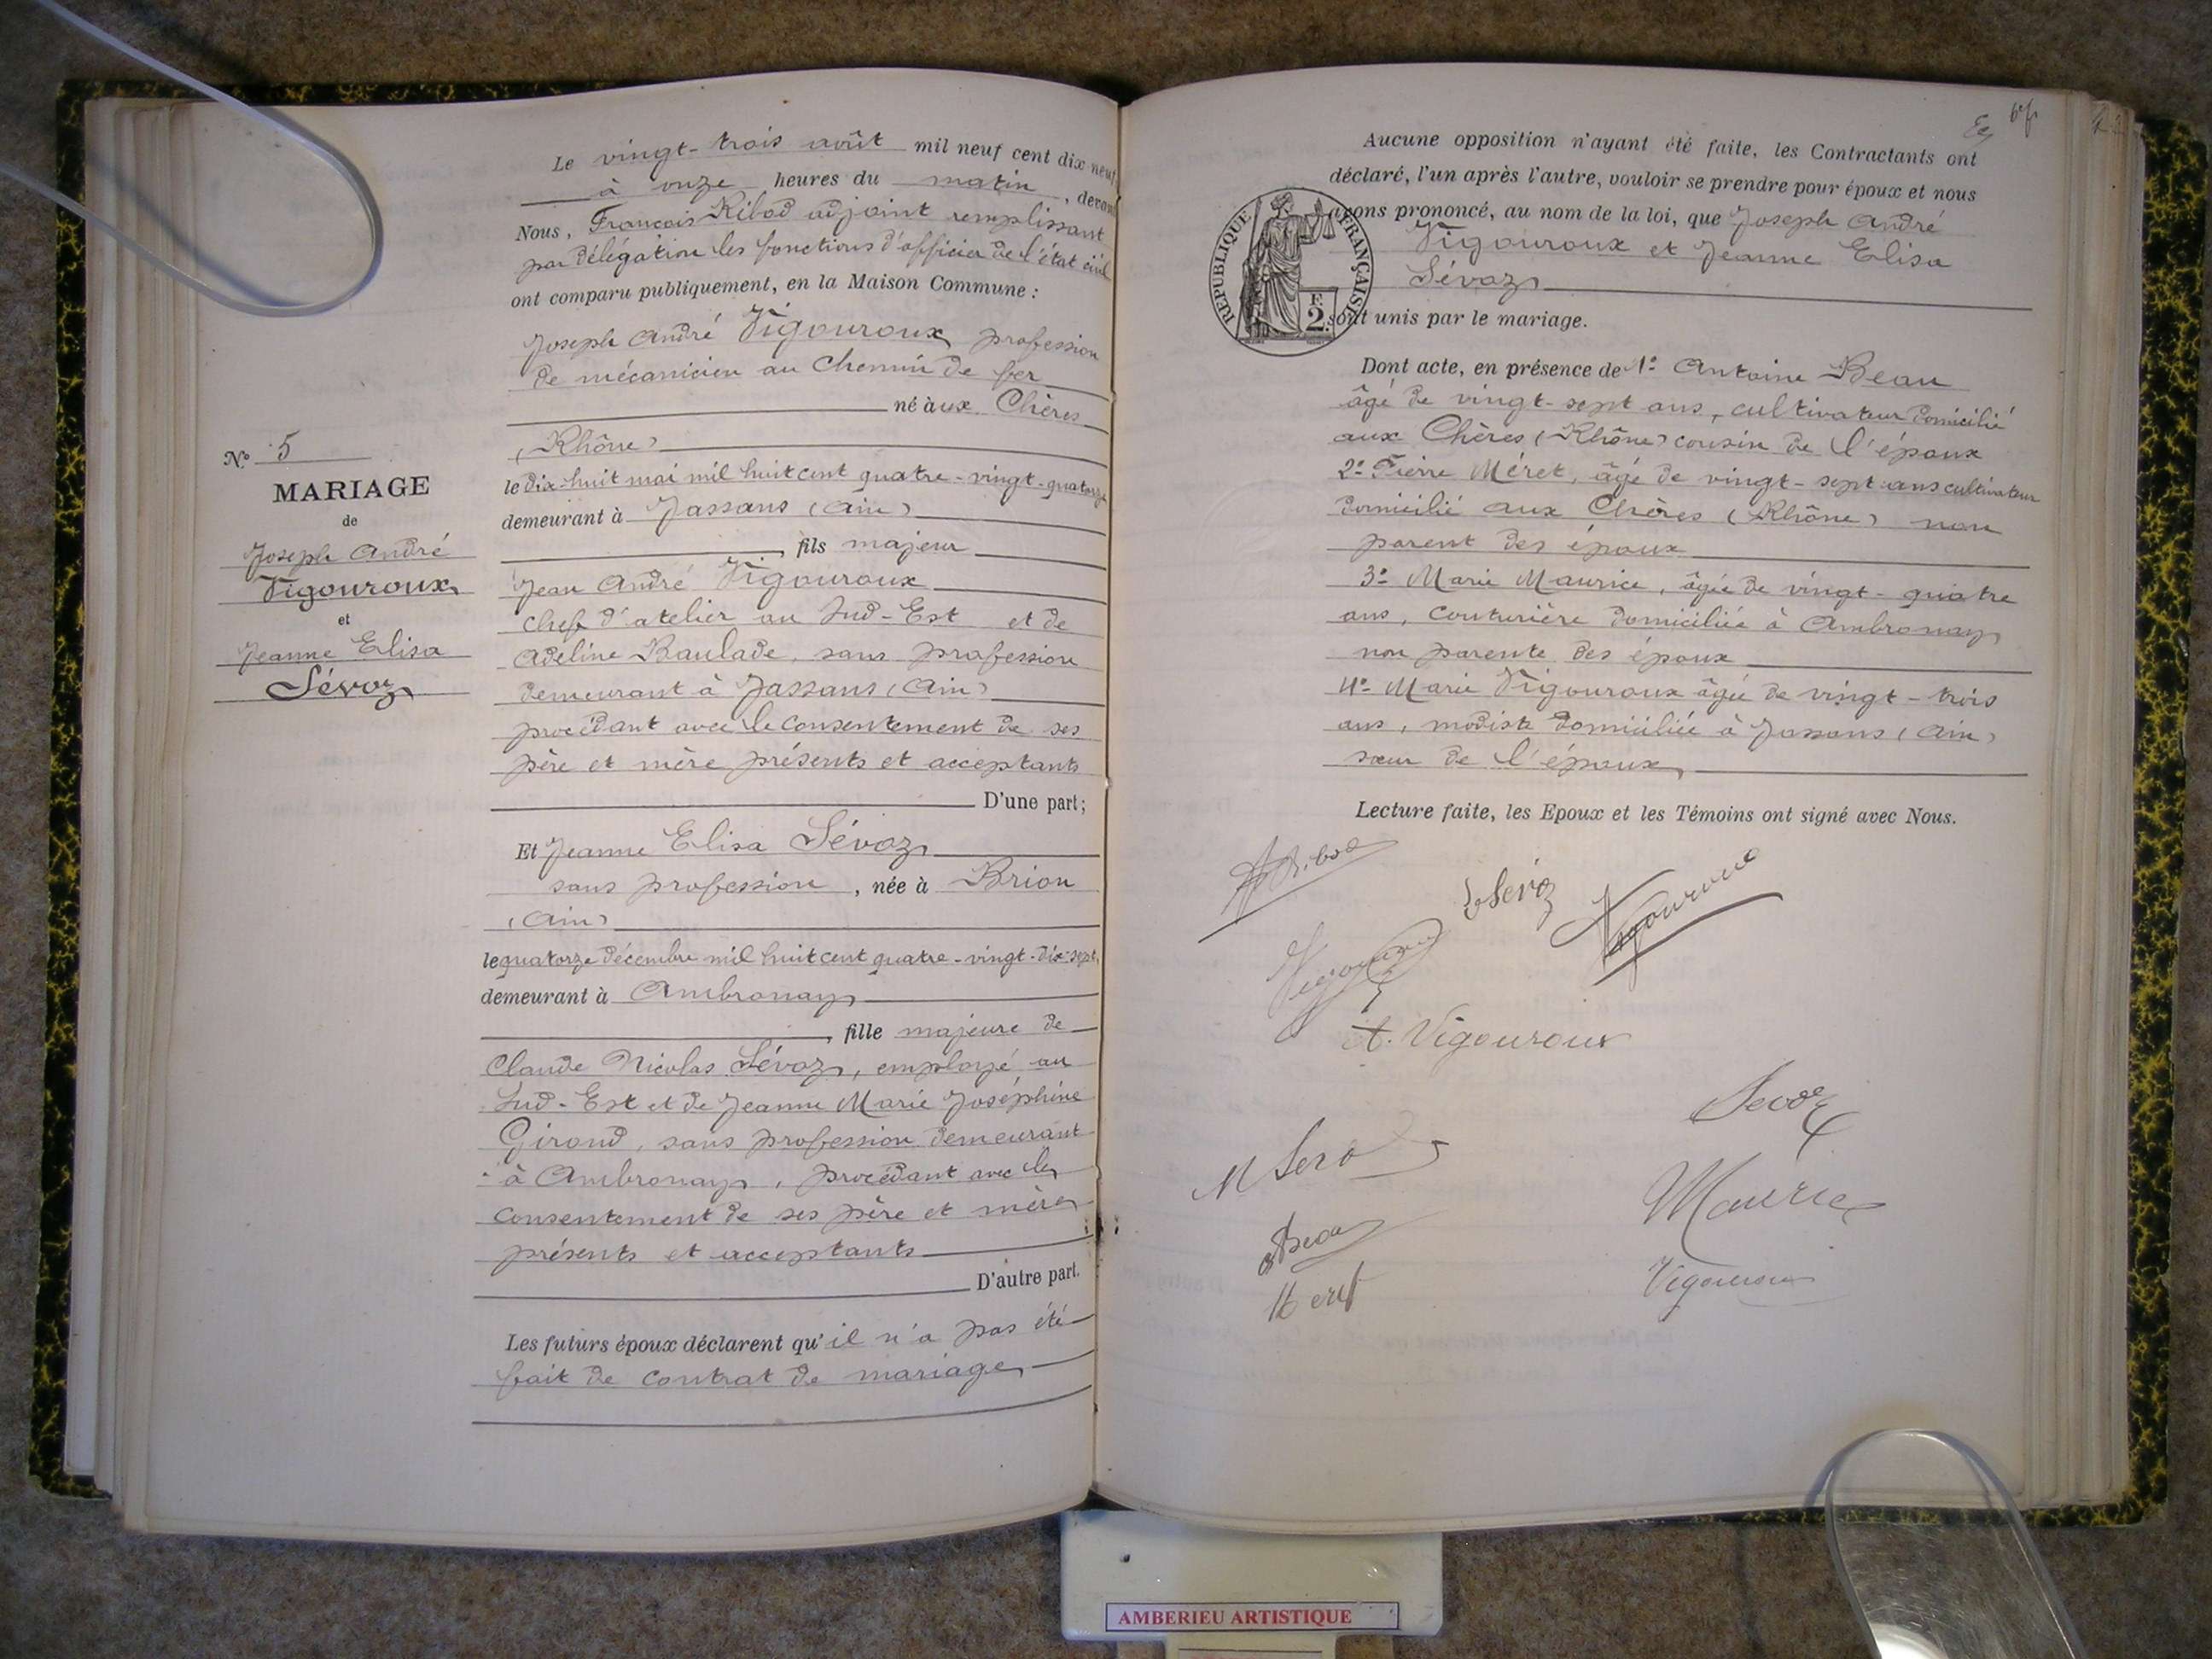 Le vingt-trois août mil neuf cent dix neuf
à onze heures du matin, devant
Nous, François Ribod adjoint remplissant
par délégation les fonctions d'officier de l'état civil
ont comparu publiquement, en la Maison Commune :
Joseph André Vigouroux profession
de mécanicien au Chemin de fer
né à ux Chères
(Rhône)
le dix-huit mai mil huit cent quatre-vingt-quatorze
demeurant à Jassans (Ain)
, fils majeur
Jean André Vigouroux
chef d'atelier au Sud-Est et de
Adeline Baulade, sans profession
demeurant à Jassans (Ain)
procédant avec le consentement de ses
père et mère présents et acceptants
D'une part ;
Et Jeanne Elisa Sévoz
sans profession, née à Brion
(Ain)
le quatorze décembre mil huit cent quatre-vingt-dix-sept,
demeurant à Ambronay
, fille majeure de
Claude Nicolas Sévoz, employé au
Sud-Est et de Jeanne Marie Joséphine
Giroud, sans profession demeurant
à Ambronay, procédant avec le
consentement de ses père et mère
présents et acceptants
D'autre part.
Les futurs époux déclarent qu'il n'a pas été
fait de contrat de mariage
N° 5
MARIAGE
de
Joseph André
Vigouroux
et
Jeanne Elisa
Sévoz
Aucune opposition n'ayant été faite, les Contractants ont
déclaré, l'un après l'autre, vouloir se prendre pour époux et nous
avons prononcé, au nom de la loi, que Joseph André
Vigouroux et Jeanne Elisa
Sévoz
sont unis par le mariage.
RÉPUBLIQUE FRANÇAISE
F.
2.
Dont acte, en présence de 1° Antoine Beau
âgé de vingt-sept ans, cultivateur domicilié
aux Chères (Rhône) cousin de l'époux
2° Pierre Méret, âgé de vingt-sept ans cultivateur
domicilié aux Chères (Rhône) non
parent des époux
3° Marie Maurice, âgée de vingt-quatre
ans, couturière domiciliée à Ambronay
non parente des époux
4° Marie Vigouroux âgée de vingt-trois
ans, modiste domiciliée à Jassans (Ain)
sœur de l'époux
Lecture faite, les Epoux et les Témoins ont signé avec Nous.
Ribod
Sévoz
Vigouroux
Vigouroux
A. Vigouroux
Sevoz
M Sevoz
Maurice
Beau
Meret
Vigouroux
AMBERIEU ARTISTIQUE